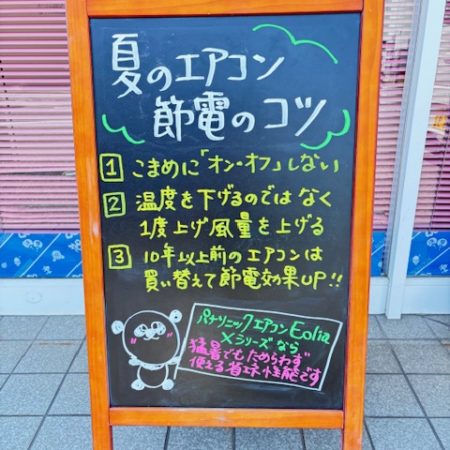 夏のエアコン
節電のコツ
1 こまめに「オン・オフ」しない
2 温度を下げるのではなく
1度上げ風量を上げる
3 10年以上前のエアコンは
買い替えて節電効果UP!!
パナソニックエアコンEolia
Xシリーズなら
猛暑でもためらわず
使える省エネ性能です